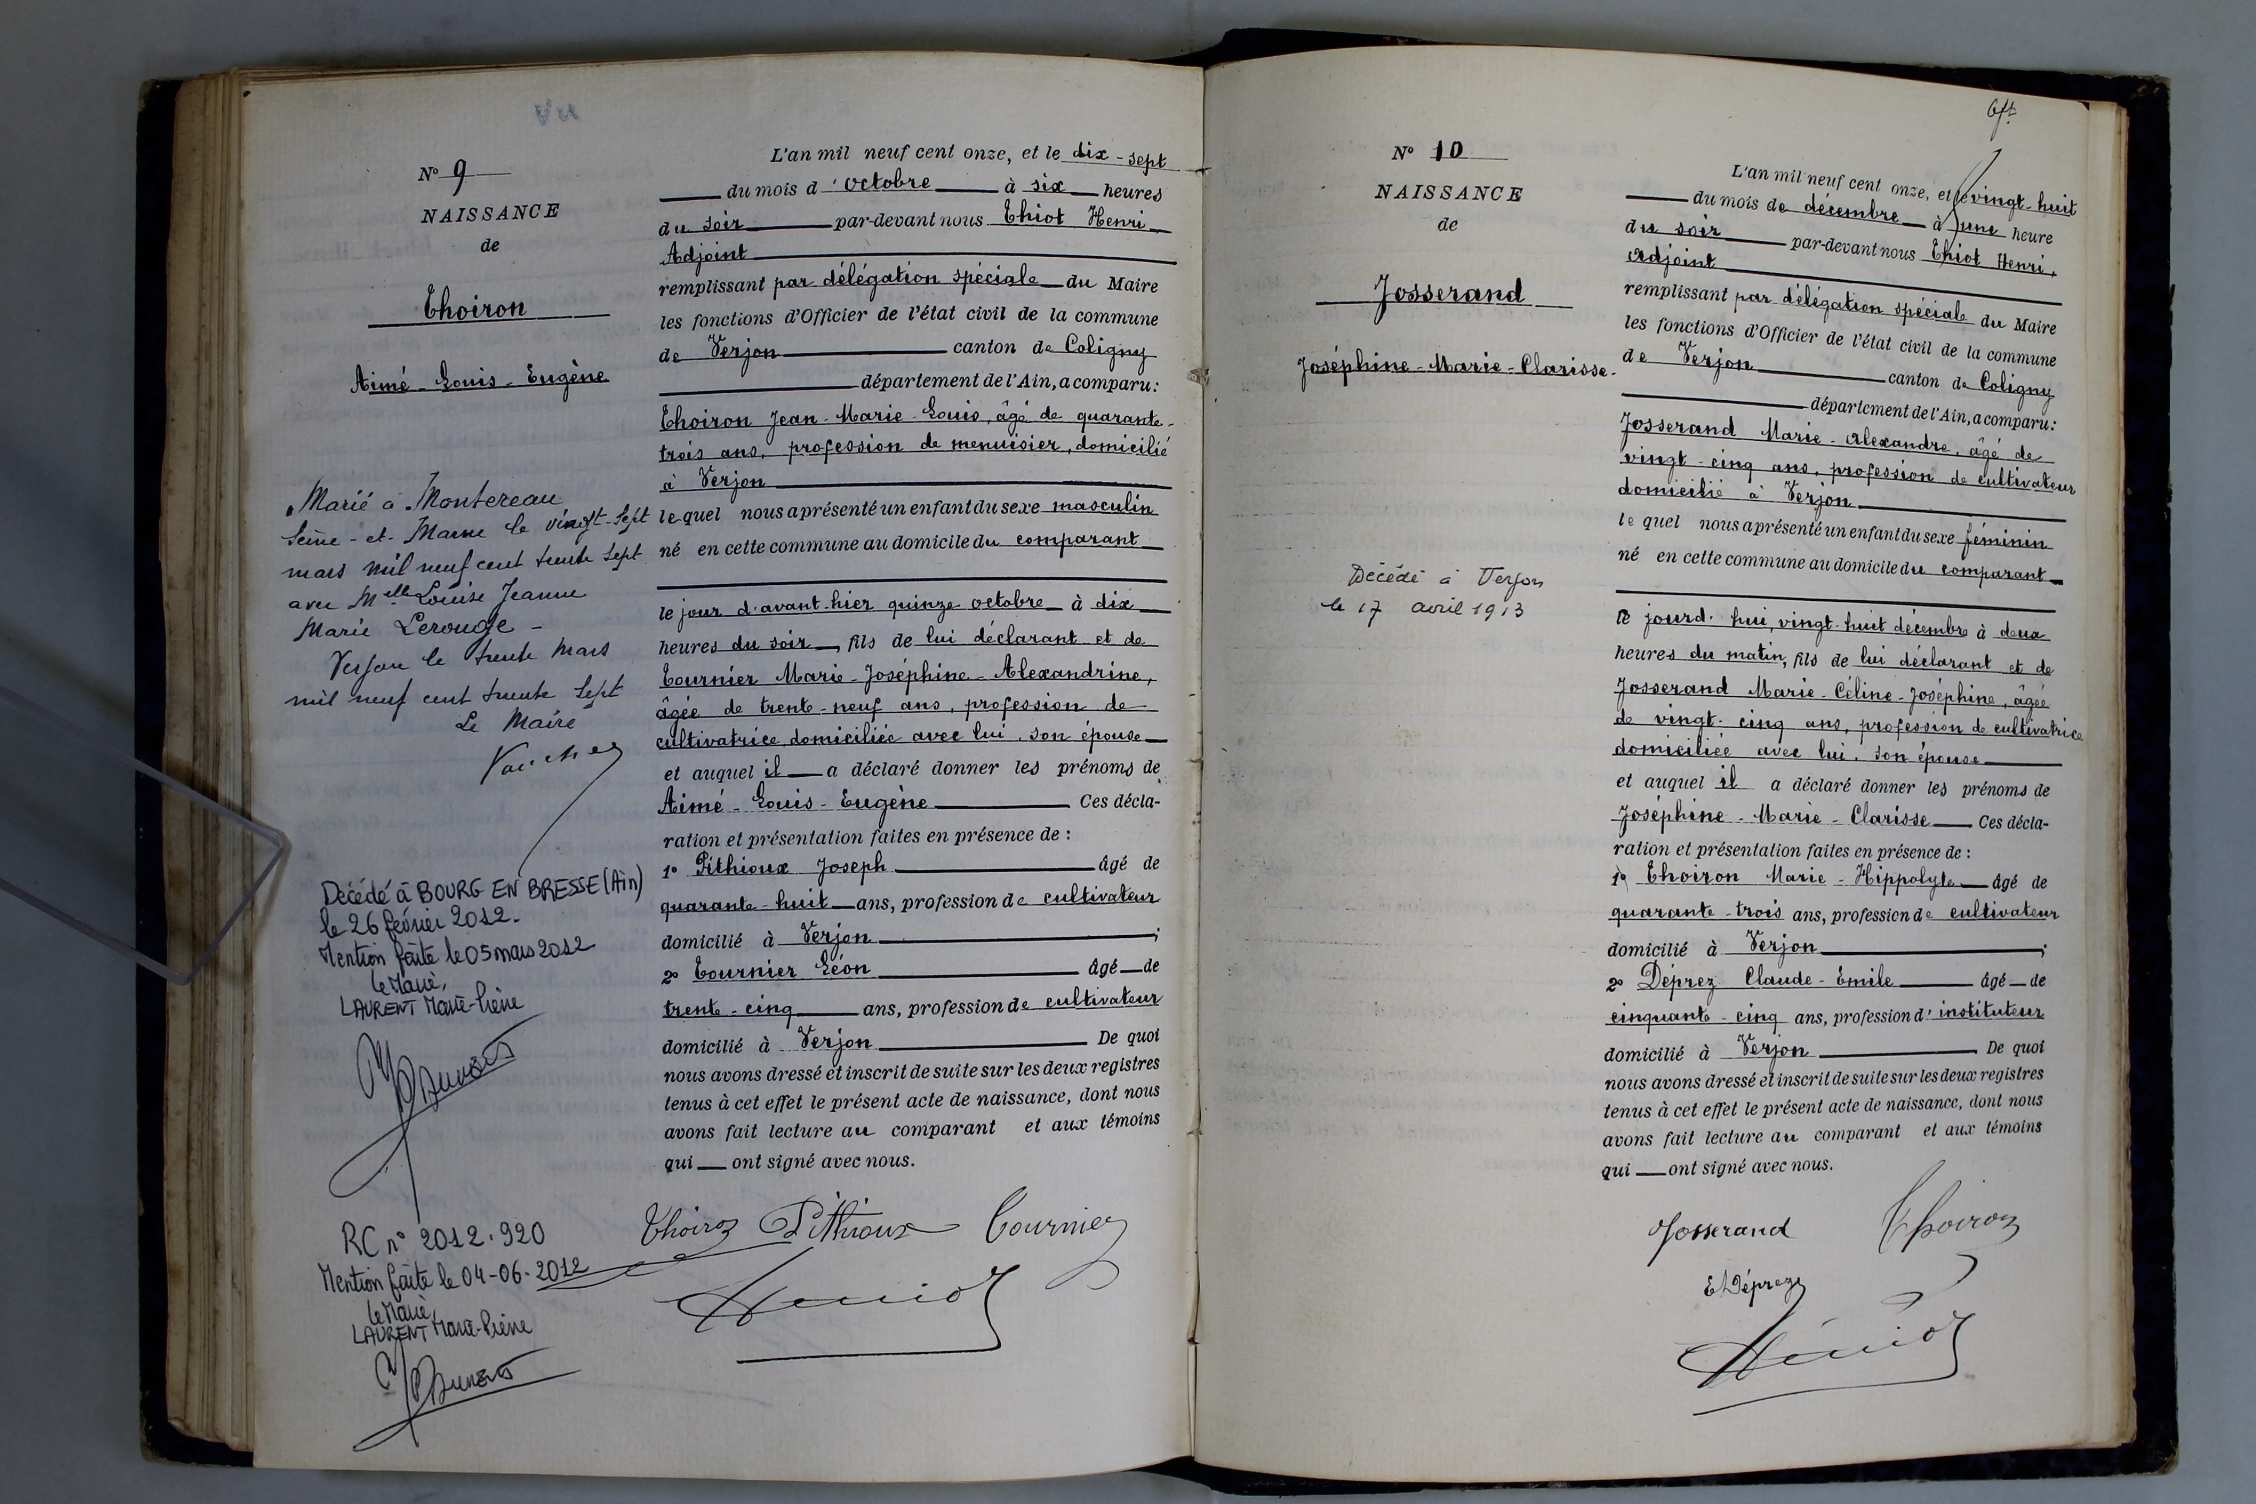 N° 9
NAISSANCE
de
Thoiron
Aimé - Louis - Eugène
Marié à Montereau
Seine - et - Marne le vingt-sept
mars mil neuf cent trente sept
avec Mlle Louise Jeanne
Marie Lerouge -
Verjon le trente mars
mil neuf cent trente sept
Le Maire
Décédé à BOURG EN BRESSE (Ain)
le 26 février 2012.
Mention faite le 05 mars 2012
le Maire,
LAURENT Marie-Pierre
RC n° 2012.920
Mention faite le 04-06-2012
le Maire,
LAURENT Marie-Pierre
L'an mil neuf cent onze, et le dix - sept
du mois d'octobre à six heures
du soir par-devant nous Thiot Henri
Adjoint
remplissant par délégation spéciale du Maire
les fonctions d'Officier de l'état civil de la commune
de Verjon canton de Coligny
département de l'Ain, a comparu:
Thoiron Jean - Marie - Louis, âgé de quarante-
trois ans, profession de menuisier, domicilié
à Verjon
lequel nous a présenté un enfant du sexe masculin
né en cette commune au domicile du comparant
le jour d'avant-hier quinze octobre à dix
heures du soir, fils de lui déclarant et de
Tournier Marie - Joséphine - Alexandrine,
âgée de trente-neuf ans, profession de
cultivatrice, domiciliée avec lui, son épouse
et auquel il a déclaré donner les prénoms de
Aimé - Louis - Eugène Ces décla-
ration et présentation faites en présence de :
1° Pithioux Joseph âgé de
quarante-huit ans, profession de cultivateur
domicilié à Verjon ;
2° Tournier Léon âgé de
trente - cinq ans, profession de cultivateur
domicilié à Verjon De quoi
nous avons dressé et inscrit de suite sur les deux registres
tenus à cet effet le présent acte de naissance, dont nous
avons fait lecture au comparant et aux témoins
qui ont signé avec nous.
Thoiron Pithioux Tournier
N° 10
NAISSANCE
de
Josserand
Joséphine - Marie - Clarisse.
Décédé à Verjon
le 17 avril 1913
L'an mil neuf cent onze, et le vingt-huit
du mois de décembre à une heure
du soir par-devant nous Thiot Henri,
Adjoint
remplissant par délégation spéciale du Maire
les fonctions d'Officier de l'état civil de la commune
de Verjon canton de Coligny
département de l'Ain, a comparu:
Josserand Marie - Alexandre, âgé de
vingt-cinq ans, profession de cultivateur
domicilié à Verjon
lequel nous a présenté un enfant du sexe féminin
né en cette commune au domicile du comparant
le jourd'hui, vingt-huit décembre à deux
heures du matin, fils de lui déclarant et de
Josserand Marie - Céline - Joséphine, âgée
de vingt-cinq ans, profession de cultivatrice
domiciliée avec lui, son épouse
et auquel il a déclaré donner les prénoms de
Joséphine - Marie - Clarisse Ces décla-
ration et présentation faites en présence de :
1° Thoiron Marie - Hippolyte âgé de
quarante-trois ans, profession de cultivateur
domicilié à Verjon ;
2° Déprez Claude - Émile âgé de
cinquante-cinq ans, profession d'instituteur
domicilié à Verjon De quoi
nous avons dressé et inscrit de suite sur les deux registres
tenus à cet effet le présent acte de naissance, dont nous
avons fait lecture au comparant et aux témoins
qui ont signé avec nous.
Josserand Thoiron
Déprez